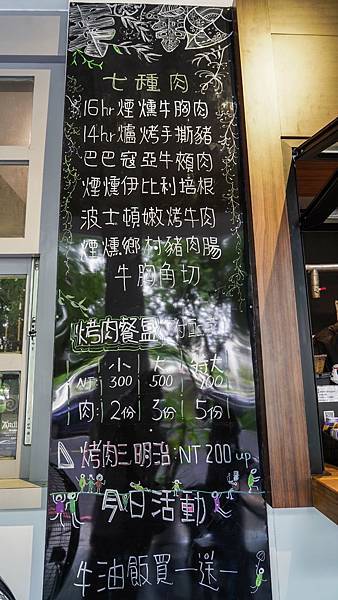 七種肉
16hr煙燻牛胸肉
14hr爐烤手撕豬
巴巴寇亞牛頰肉
煙燻伊比利培根
波士頓嫩烤牛肉
煙燻鄉村豬肉腸
牛胸角切
烤肉餐盤
小 大 特大
NT: 300 500 700
肉: 2份 3份 5份
烤肉三明治:NT 200 up
今日活動
牛油飯買一送一